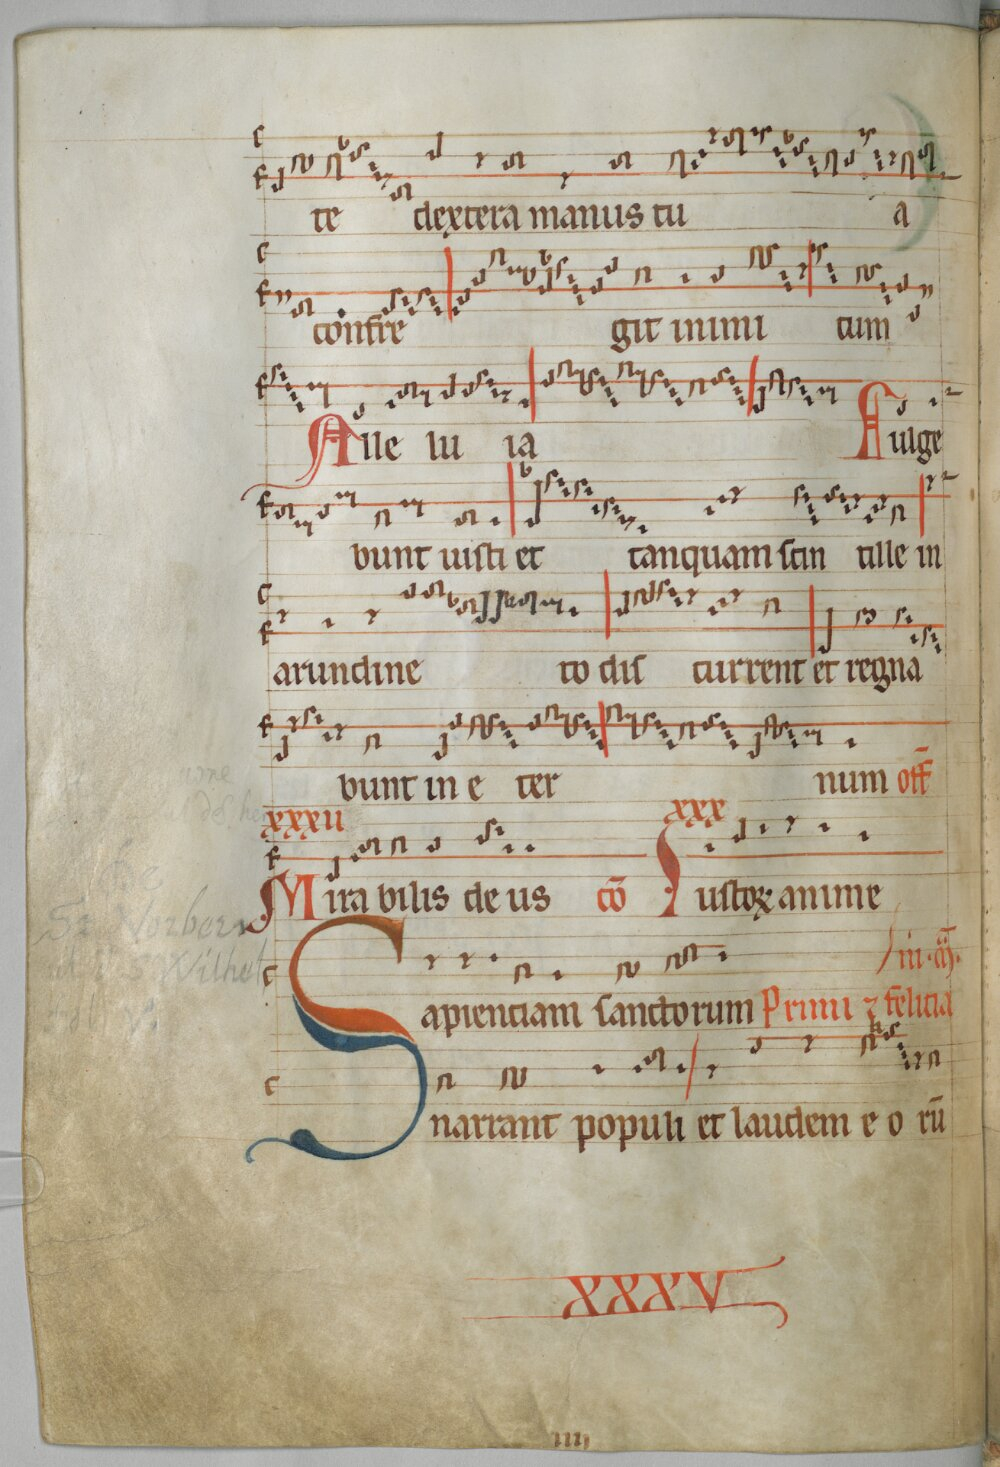 te dextera manus tu a
confre git inimi cum
Alle lu ia Fulge
bunt iusti et tanquam scin tille in
arundine to dis current et regna
bunt in e ter num off̄
xxxii xxx
Mira bilis de us cō Iustoꝝ anime
iii·
Sapienciam sanctorum Primi ⁊ felicia
narrant populi et laudem e o rū
XXXV